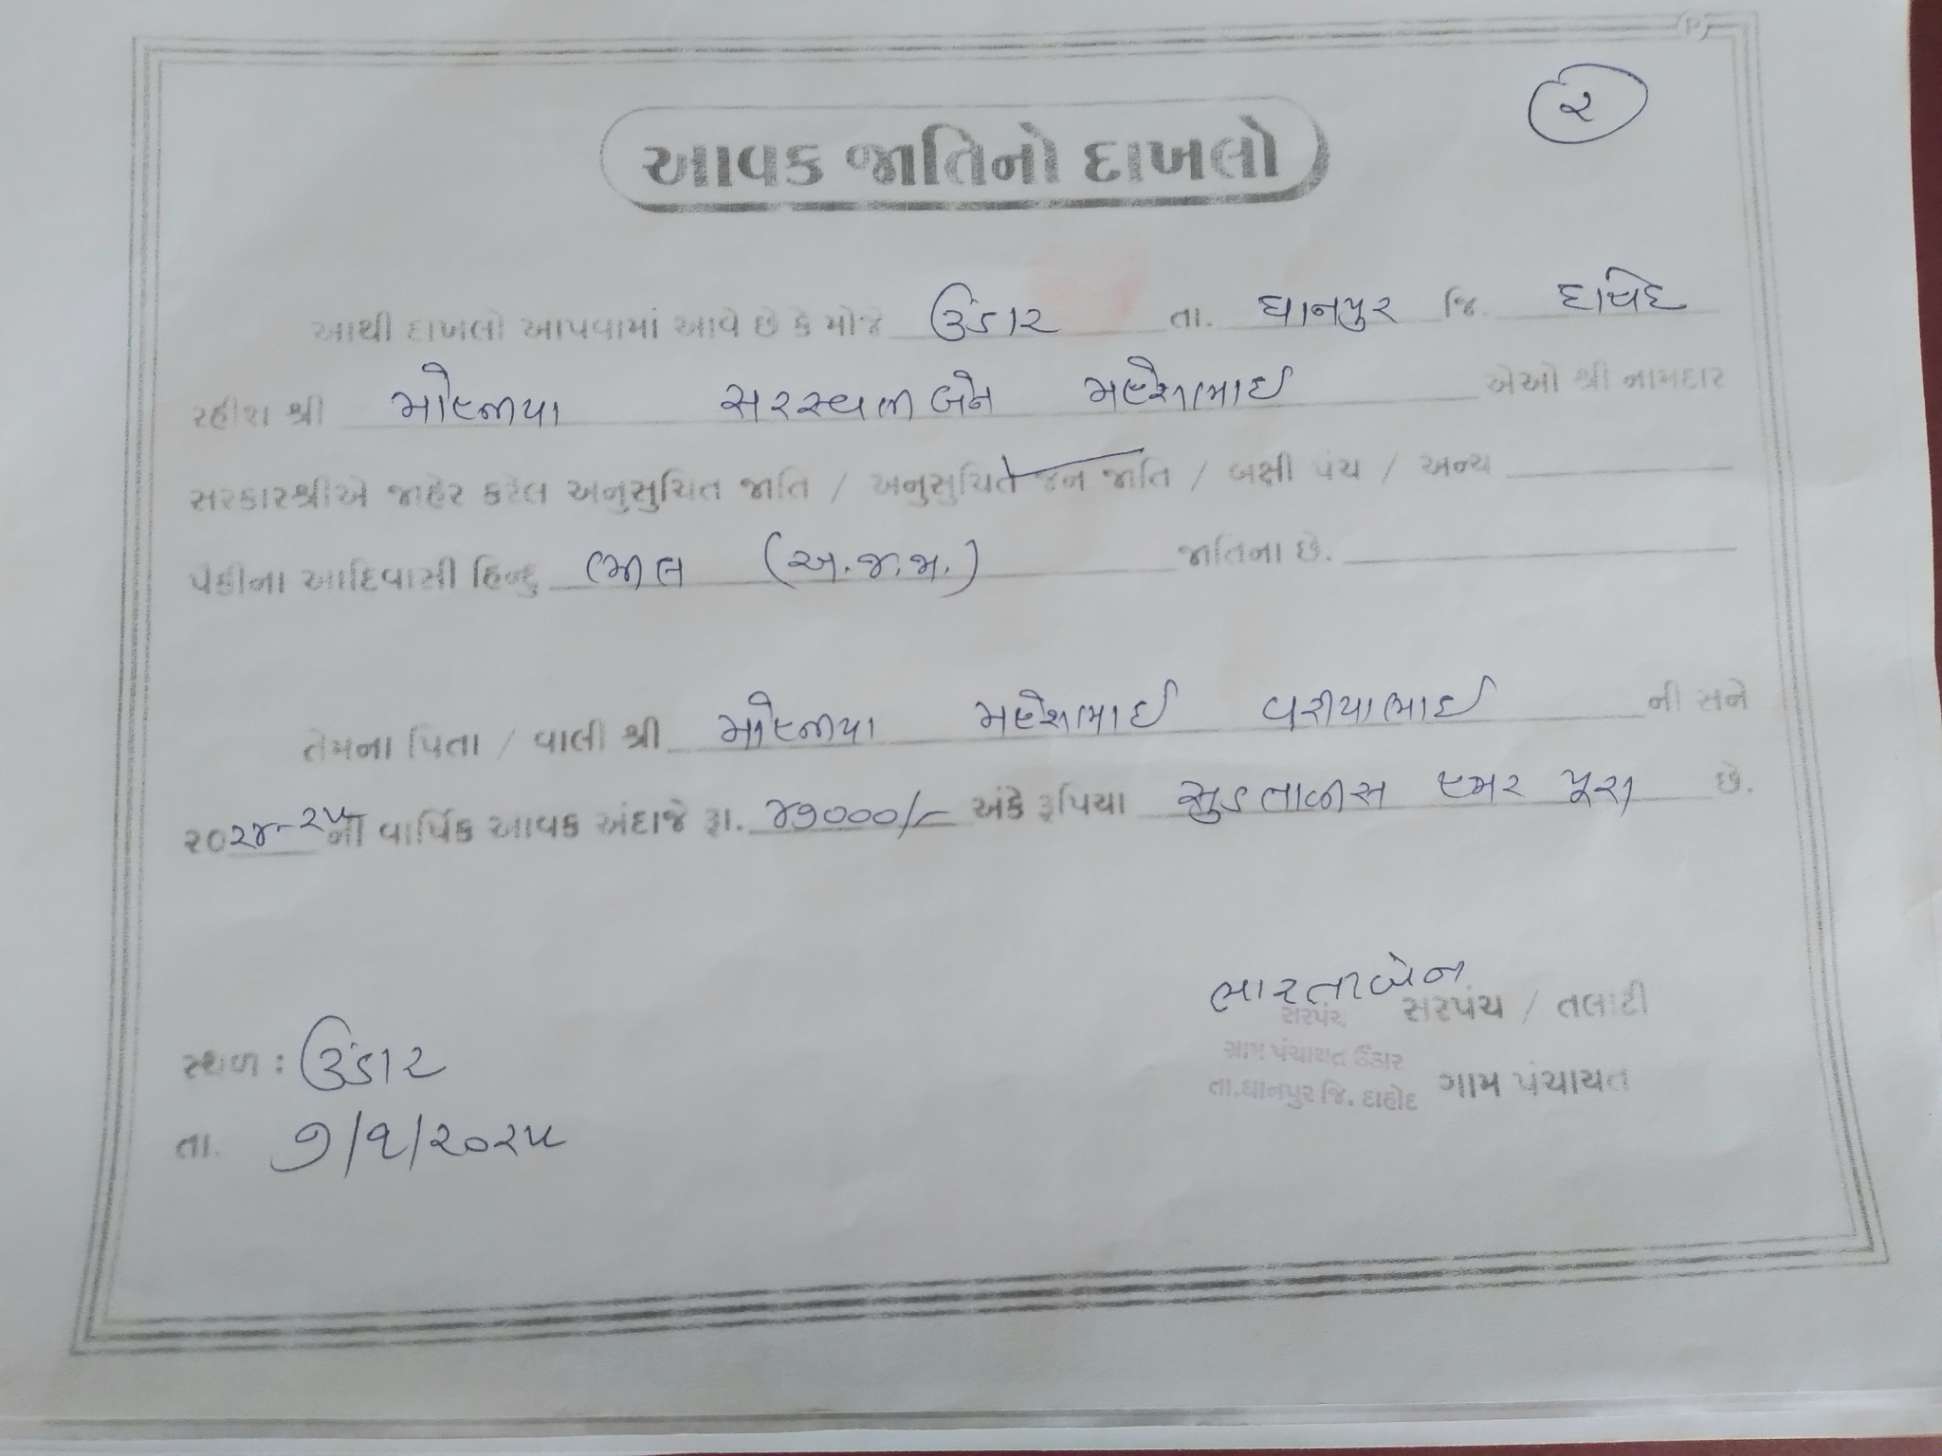 ૨
આવક જાતિનો દાખલો
આથી દાખલો આપવામાં આવે છે કે મોજે ઉંડાર તા. ધાનપુર જિ. દાહોદ
રહીશ શ્રી મોહનીયા સરસ્વતીબેન મહેશભાઈ એઓ શ્રી નામદાર
સરકારશ્રીએ જાહેર કરેલ અનુસુચિત જાતિ / અનુસુચિત જન જાતિ / બક્ષી પંચ / અન્ય
પૈકીના આદિવાસી હિન્દુ ભીલ (અ.જ.જા.) જાતિના છે.
તેમના પિતા / વાલી શ્રી મોહનીયા મહેશભાઈ વરીયાભાઈ ની સને
૨૦૨૪-૨૫ની વાર્ષિક આવક અંદાજે રૂા. ૪૭૦૦૦/- અંકે રૂપિયા સુડતાળીસ હજાર પૂરા છે.
ભારતીબેન
સરપંચ સરપંચ / તલાટી
સ્થળ : ઉંડાર
ગ્રામ પંચાયત ઉંડાર
તા.ધાનપુર જિ. દાહોદ ગામ પંચાયત
તા. ૭/૧/૨૦૨૫